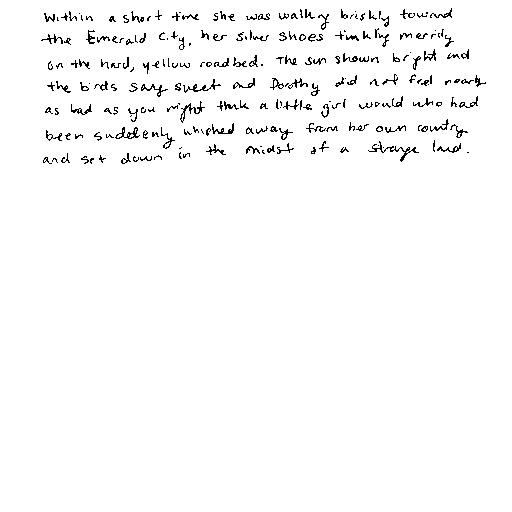 Within a short time she was walking briskly toward
the Emerald City, her silver shoes tinkling merrily
on the hard, yellow roadbed. The sun shown bright and
the birds sang sweet and Dorothy did not feel nearly
as bad as you might think a little girl would who had
been suddenly whisked away from her own country
and set down in the midst of a strange land.